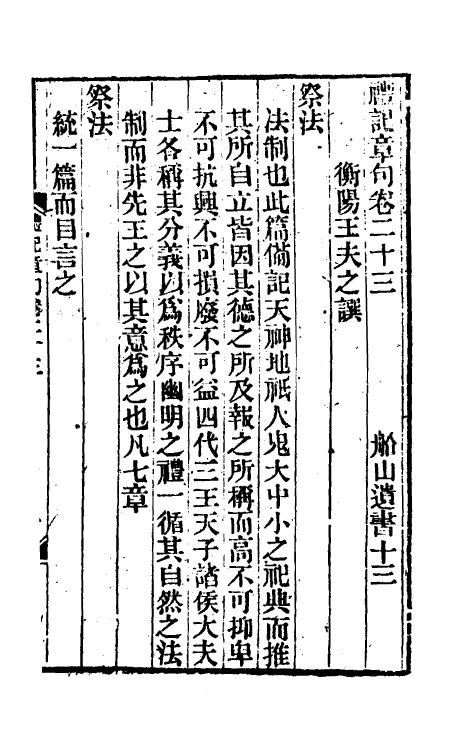 禮記章句卷二十三　船山遺書十三
衡陽王夫之譔
祭法
法制也此篇備記天神地祇人鬼大中小之祀典而推
其所自立皆因其德之所及報之所稱而高不可抑卑
不可抗興不可損廢不可益四代三王天子諸侯大夫
士各稱其分義以爲秩序幽明之禮一循其自然之法
制而非先王之以其意爲之也凡七章
祭法
統一篇而目言之
禮記章句卷二十三